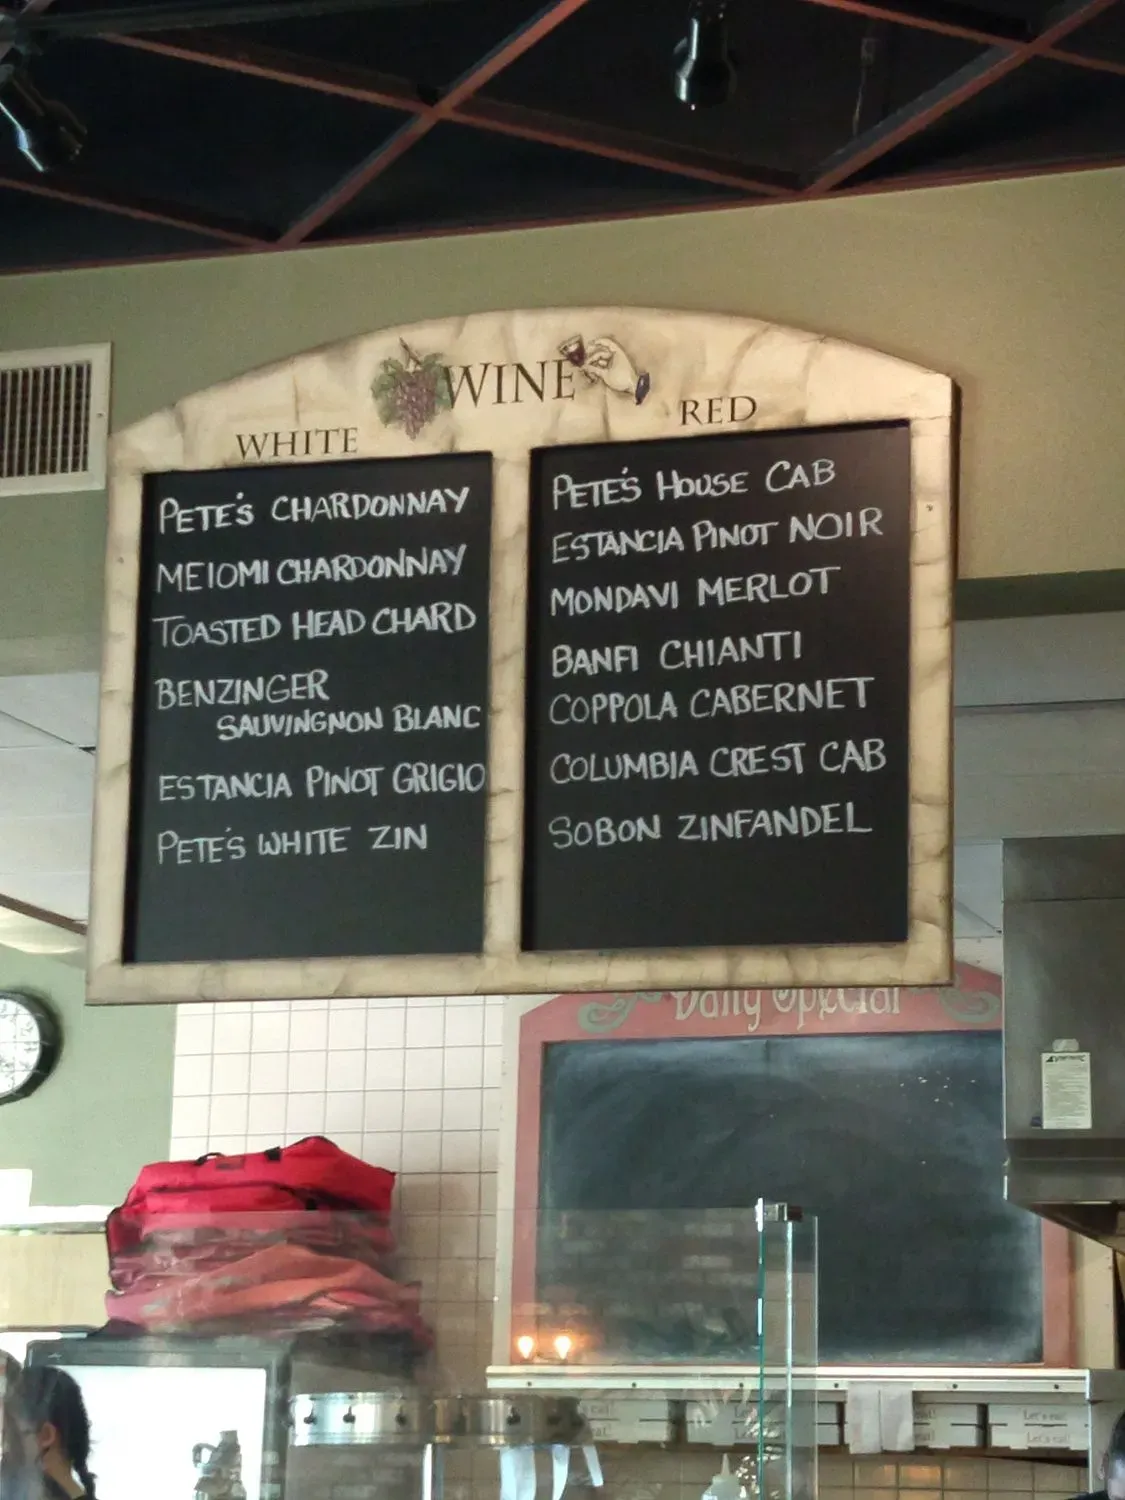 WINE
WHITE
PETE'S CHARDONNAY
MEIOMI CHARDONNAY
TOASTED HEAD CHARD
BENZINGER
SAUVINGNON BLANC
ESTANCIA PINOT GRIGIO
PETE'S WHITE ZIN
RED
PETE'S HOUSE CAB
ESTANCIA PINOT NOIR
MONDAVI MERLOT
BANFI CHIANTI
COPPOLA CABERNET
COLUMBIA CREST CAB
SOBON ZINFANDEL
Daily Special
Let's eat!
Let's eat!